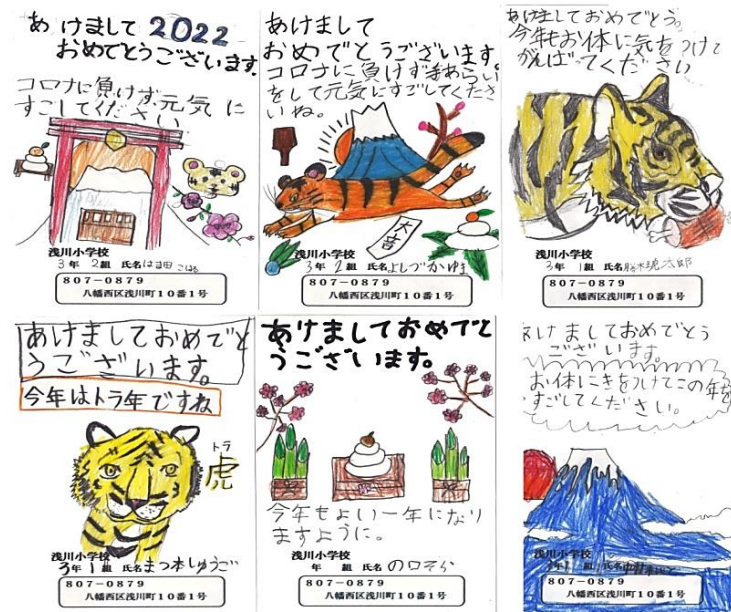 あけまして 2022
おめでとうございます。
コロナに負けず元気に
すごしてください
浅川小学校
3年 2組 氏名
807-0879
八幡西区浅川町10番1号
あけまして
おめでとうございます。
コロナに負けず手あらい
をして元気にすごしてくださ
いね。
大吉
浅川小学校
3年 2組 氏名よしづかゆき
807-0879
八幡西区浅川町10番1号
あけましておめでとう。
今年もお体に気をつけて
がんばってください
浅川小学校
3年 1組 氏名
807-0879
八幡西区浅川町10番1号
あけましておめでと
うございます。
今年はトラ年ですね
トラ
虎
浅川小学校
3年1組 氏名まつ本しゅうご
807-0879
八幡西区浅川町10番1号
あけましておめでと
うございます。
今年もよい一年になり
ますように。
浅川小学校
年 組 氏名のロそら
807-0879
八幡西区浅川町10番1号
あけましておめでとう
ございます。
お体にきをつけてこの年を
すごしてください。
浅川小学校
3年1組 氏名
807-0879
八幡西区浅川町10番1号